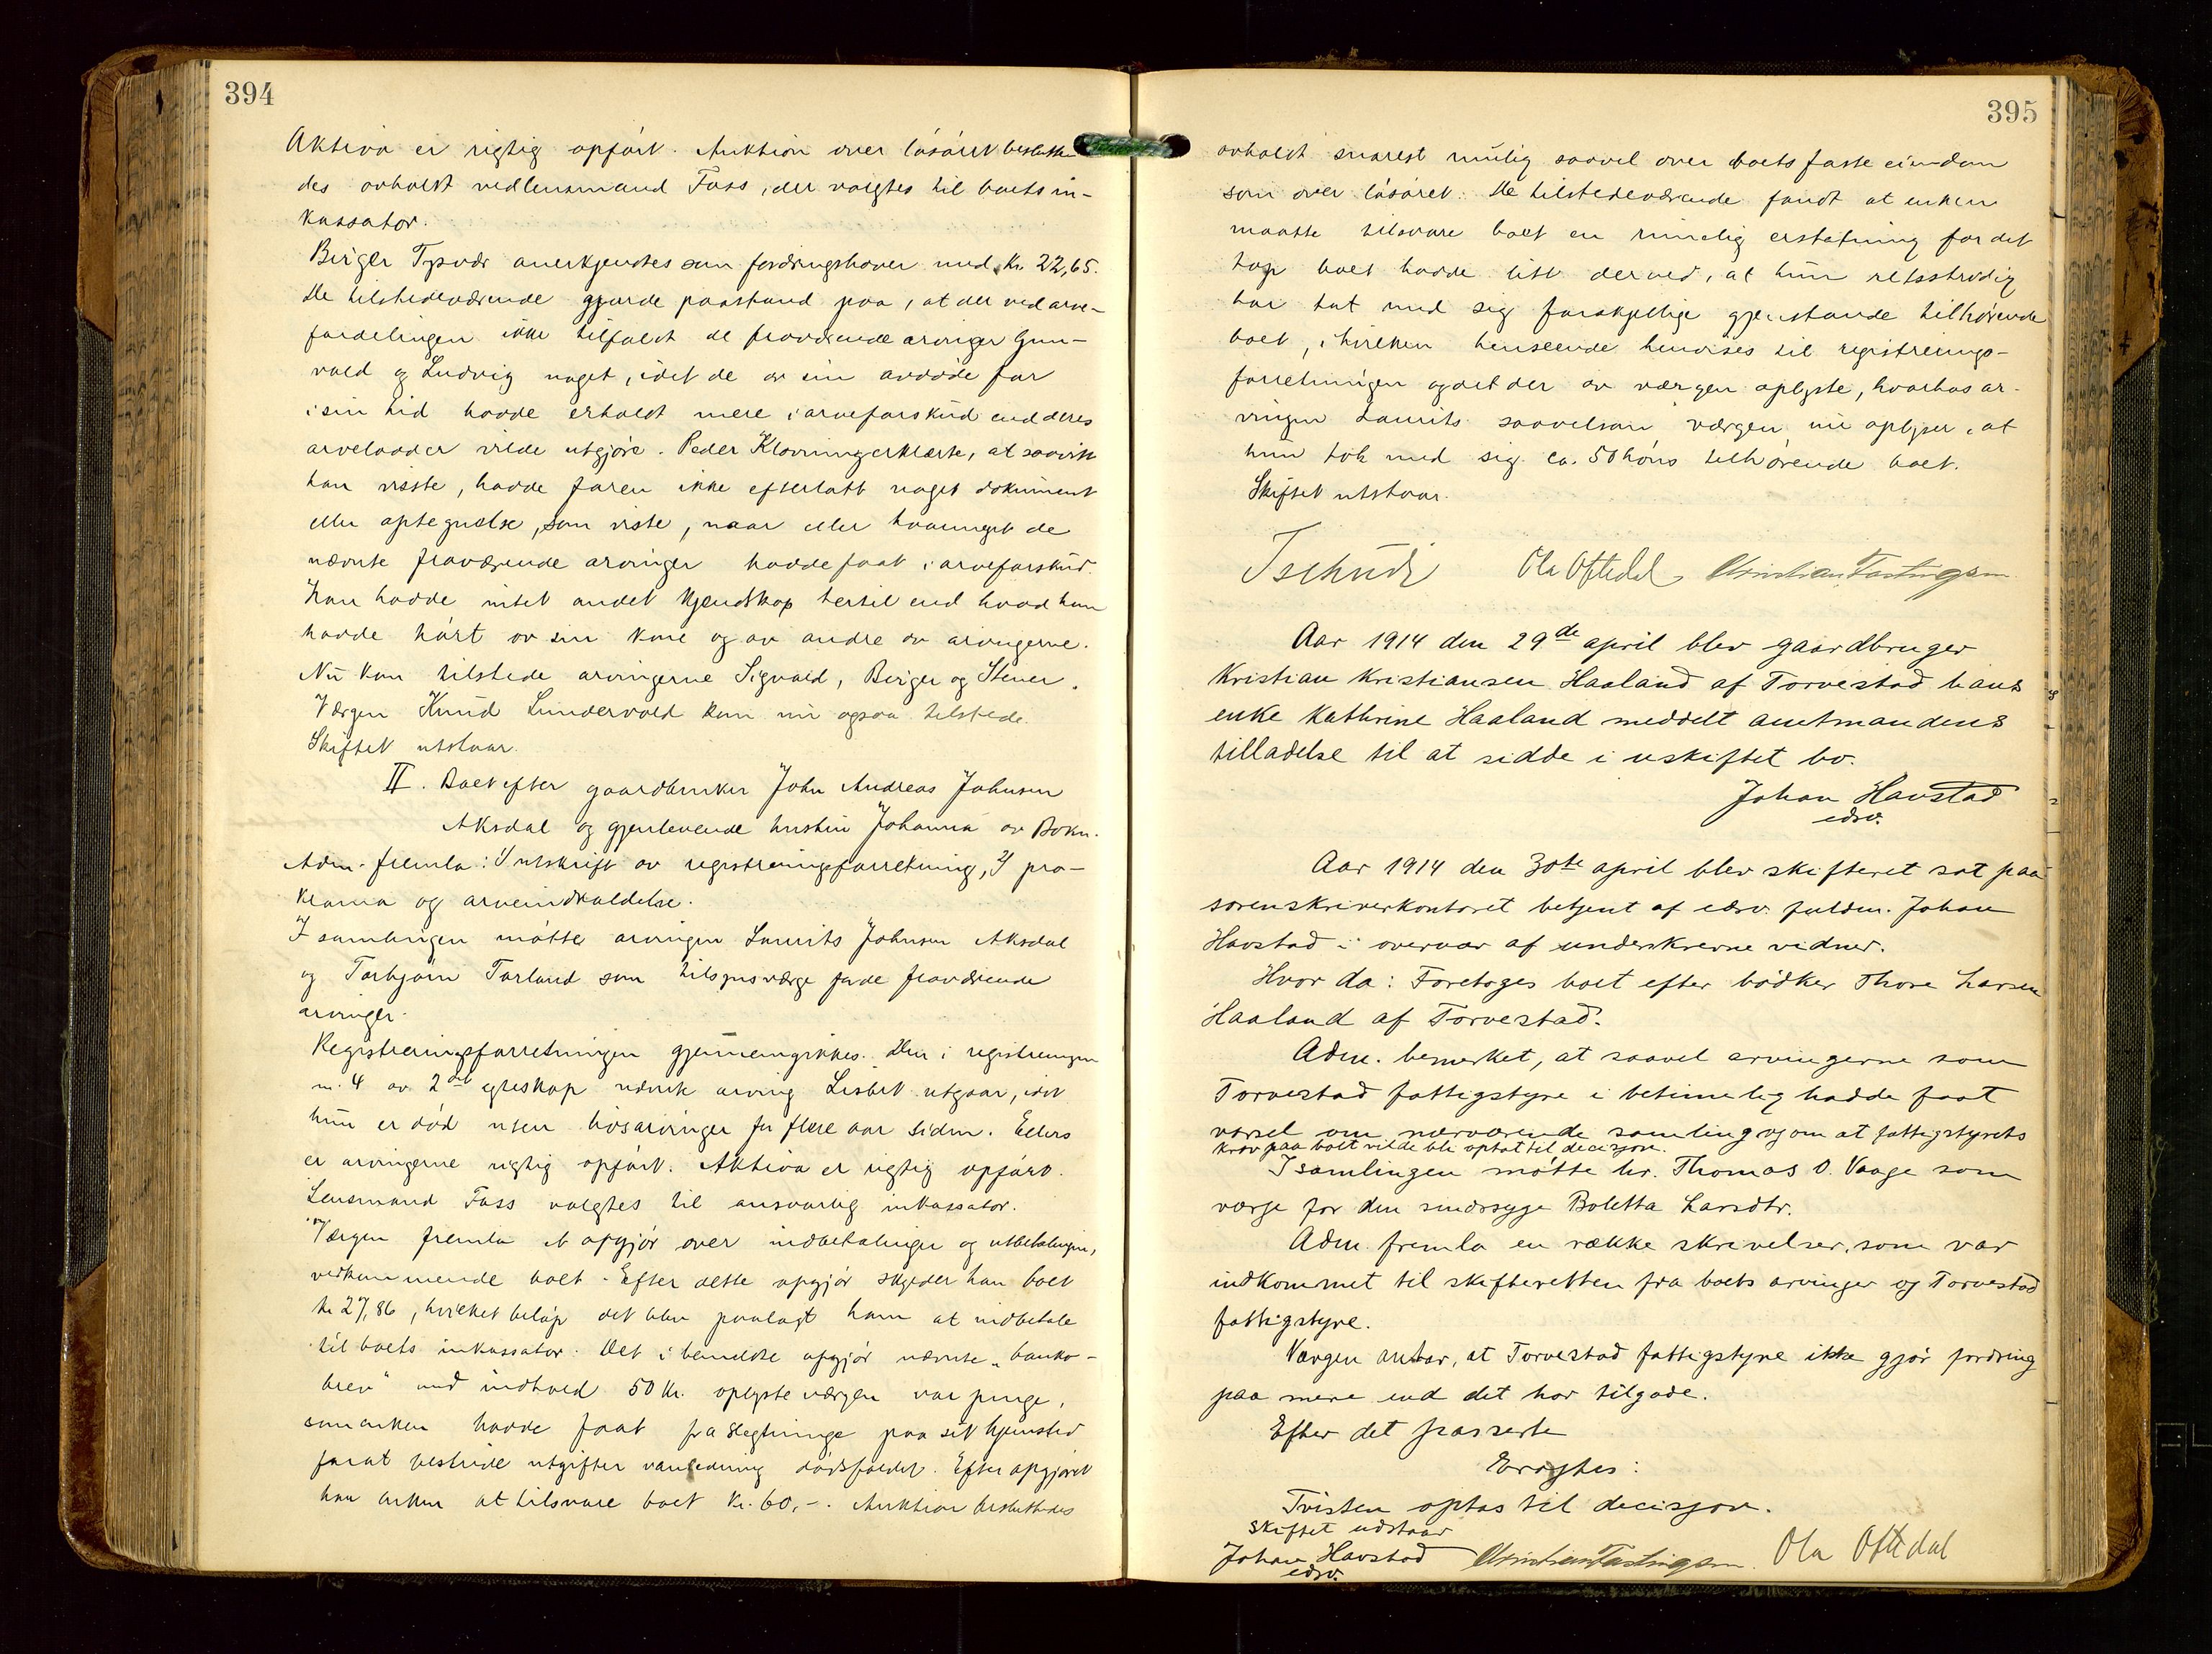 394
Aktiva er rigtig opført. Auktion over løsøret beslutte-
des avholdt ved lensmand Fass, der valgtes til boets in-
kassator.
Birger Tysvær anerkjendtes som fordringshaver med Kr. 22,65.
De tilstedeværende gjorde paastand paa, at der ved arve-
fordelingen ikke tilfaldt de fraværende arvinger Gun-
vald og Ludvig noget, idet de av sin avdøde far
i sin tid hadde erholdt mere i arveforskud end deres
arvelodder vilde utgjøre. Peder Kløvning erklærte, at saavidt
han visste, hadde faren ikke efterlatt noget dokument
eller optegnelse, som viste, naar eller hvormeget de
nævnte fraværende arvinger hadde faat i arveforskud.
Han hadde intet andet kjendskap hertil end hvad han
hadde hørt av sin kone og av andre av arvingerne.
Nu kom tilstede arvingerne Sigvald, Birger og Stener.
Værgen Knud Lundervold kom nu ogsaa tilstede.
Skiftet utstaar.
II. Boet efter gaardbruker John Andreas Johnsen
Aksdal og gjenlevende hustru Johanna av Bokn.
Adm. fremla: 1) utskrift av registreringsforretning, 2) pro-
klama og arveindkaldelse.
I samlingen møtte arvingen Laurits Johnsen Aksdal
og Torbjørn Torland som tilsynsværge for de fraværende
arvinger.
Registreringsforretningen gjennemgikkes. Den i registreringen
nr. 4 av 2det egteskap nævnte arving Lisbet utgaar, idet
hun er død uten livsarvinger for flere aar siden. Ellers
er arvingerne rigtig opført. Aktiva er rigtig opført.
Lensmand Fass valgtes til ansvarlig inkassator.
Værgen fremla et opgjør over indbetalinger og utbetalinger,
vedkommende boet. Efter dette opgjør skylder han boet
kr 27,86, hvilket beløp det blev paalagt ham at indbetale
til boets inkassator. Det i bemeldte opgjør nævnte "banko-
brev" med indhold 50 Kr. oplyste værgen var penge,
som enken hadde faat fra slegtninge paa sit hjemsted
forat bestride utgifter i anledning dødsfaldet. Efter opgjøret
har enken at tilsvare boet Kr. 60,-. Auktion besluttedes
395
avholdt snarest mulig saavel over boets faste eiendom
som over løsøret. De tilstedeværende fandt at enken
maatte tilsvare boet en rimelig erstatning for det
tap boet hadde litt derved, at hun retsstridig
har tat med sig forskjellige gjenstande tilhørende
boet, i hvilken henseende henvises til registrerings-
forretningen og det der av værgen oplyste, hvorhos ar-
vingen Laurits saavelsom værgen nu oplyser, at
hun tok med sig ca. 50 høns tilhørende boet.
Skiftet utstaar.
Tschudi Ola Oftedal Christian Fastingsen
Aar 1914 den 29de april blev gaardbruger
Kristian Kristiansen Haaland af Torvestad hans
enke Kathrine Haaland meddelt amtmandens
tilladelse til at sidde i uskiftet bo.
Johan Havstad
edsv.
Aar 1914 den 30te april blev skifteret sat paa
sorenskriverkontoret betjent af edsv. fuldm. Johan
Havstad i overvær af underskrevne vidner.
Hvor da: Foretoges boet efter bødker Thore Larsen
Haaland af Torvestad.
Adm. bemerket, at saavel arvingerne som
Torvestad fattigstyre i betimelig hadde faat
varsel om nærværende samling og om at fattigstyrets
krav paa boet vilde bli optat til decisjon.
I samlingen møtte hr. Thomas O. Vaage som
værge for den sindssyge Boletta Larsdtr.
Adm. fremla en række skrivelser, som var
indkommet til skifteretten fra boets arvinger og Torvestad
fattigstyre.
Værgen antar, at Torvestad fattigstyre ikke gjør fordring
paa mere end det har tilgode.
Efter det passerte
Eragtes:
Tvisten optas til decisjon.
Skiftet udstaar
Johan Havstad Christian Fastingsen Ola Oftedal
edsv.